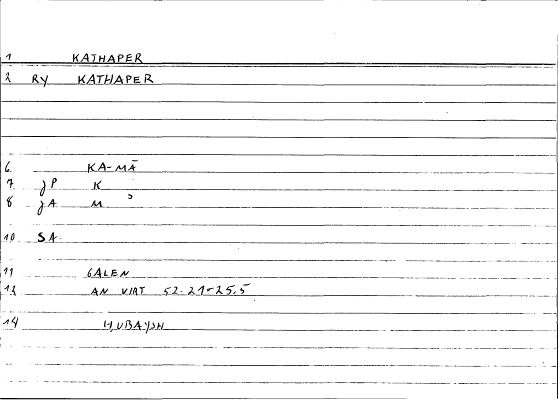 1 KATHAPER
2 RY KATHAPER
6 KA-MĀ
7 JP K
8 JA M ʾ
10 SA.
11 GALEN
13 AN VIRT 52.21-25,5
14 ḤUBAYSH